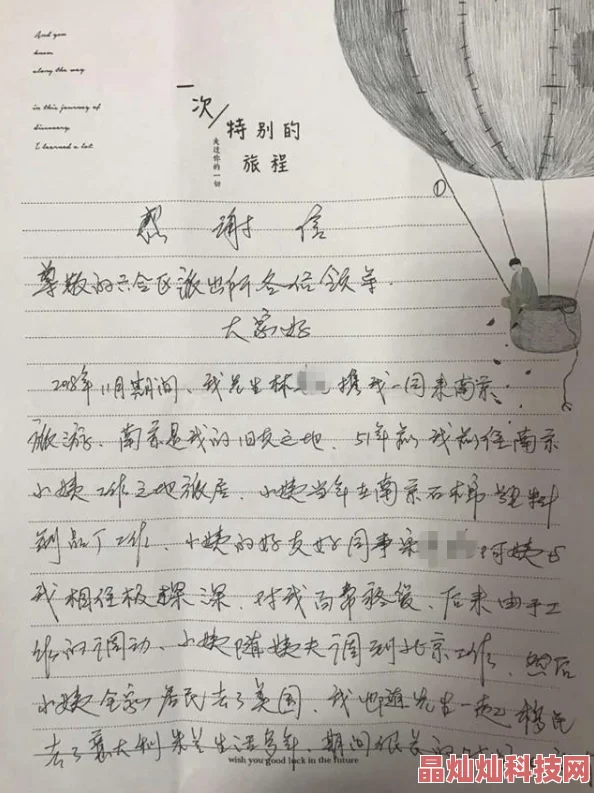 And you
know
along the way
in this journey of
discovery
I learned a lot
一次/特别的
旅程
走过你的一切
①
感谢信
尊敬的六合区派出所各位领导.
大家好
2018年11月期间、我先生林 携我一同来南京
旅游、南京是我的旧友之地、51年前我前往南京
小姨工作之地旅居、小姨当年在南京石棉塑料
制品厂工作、小姨的好友好同事宋 阿姨与
我相住极深、对我百般 、后来由于工
作的调动、小姨随姨夫调到北京工作、然后
小姨全家居民去了美国、我也随先生一起移民
去了意大利米兰生活多年、期间很
wish you good luck in the future
晶灿灿科技网